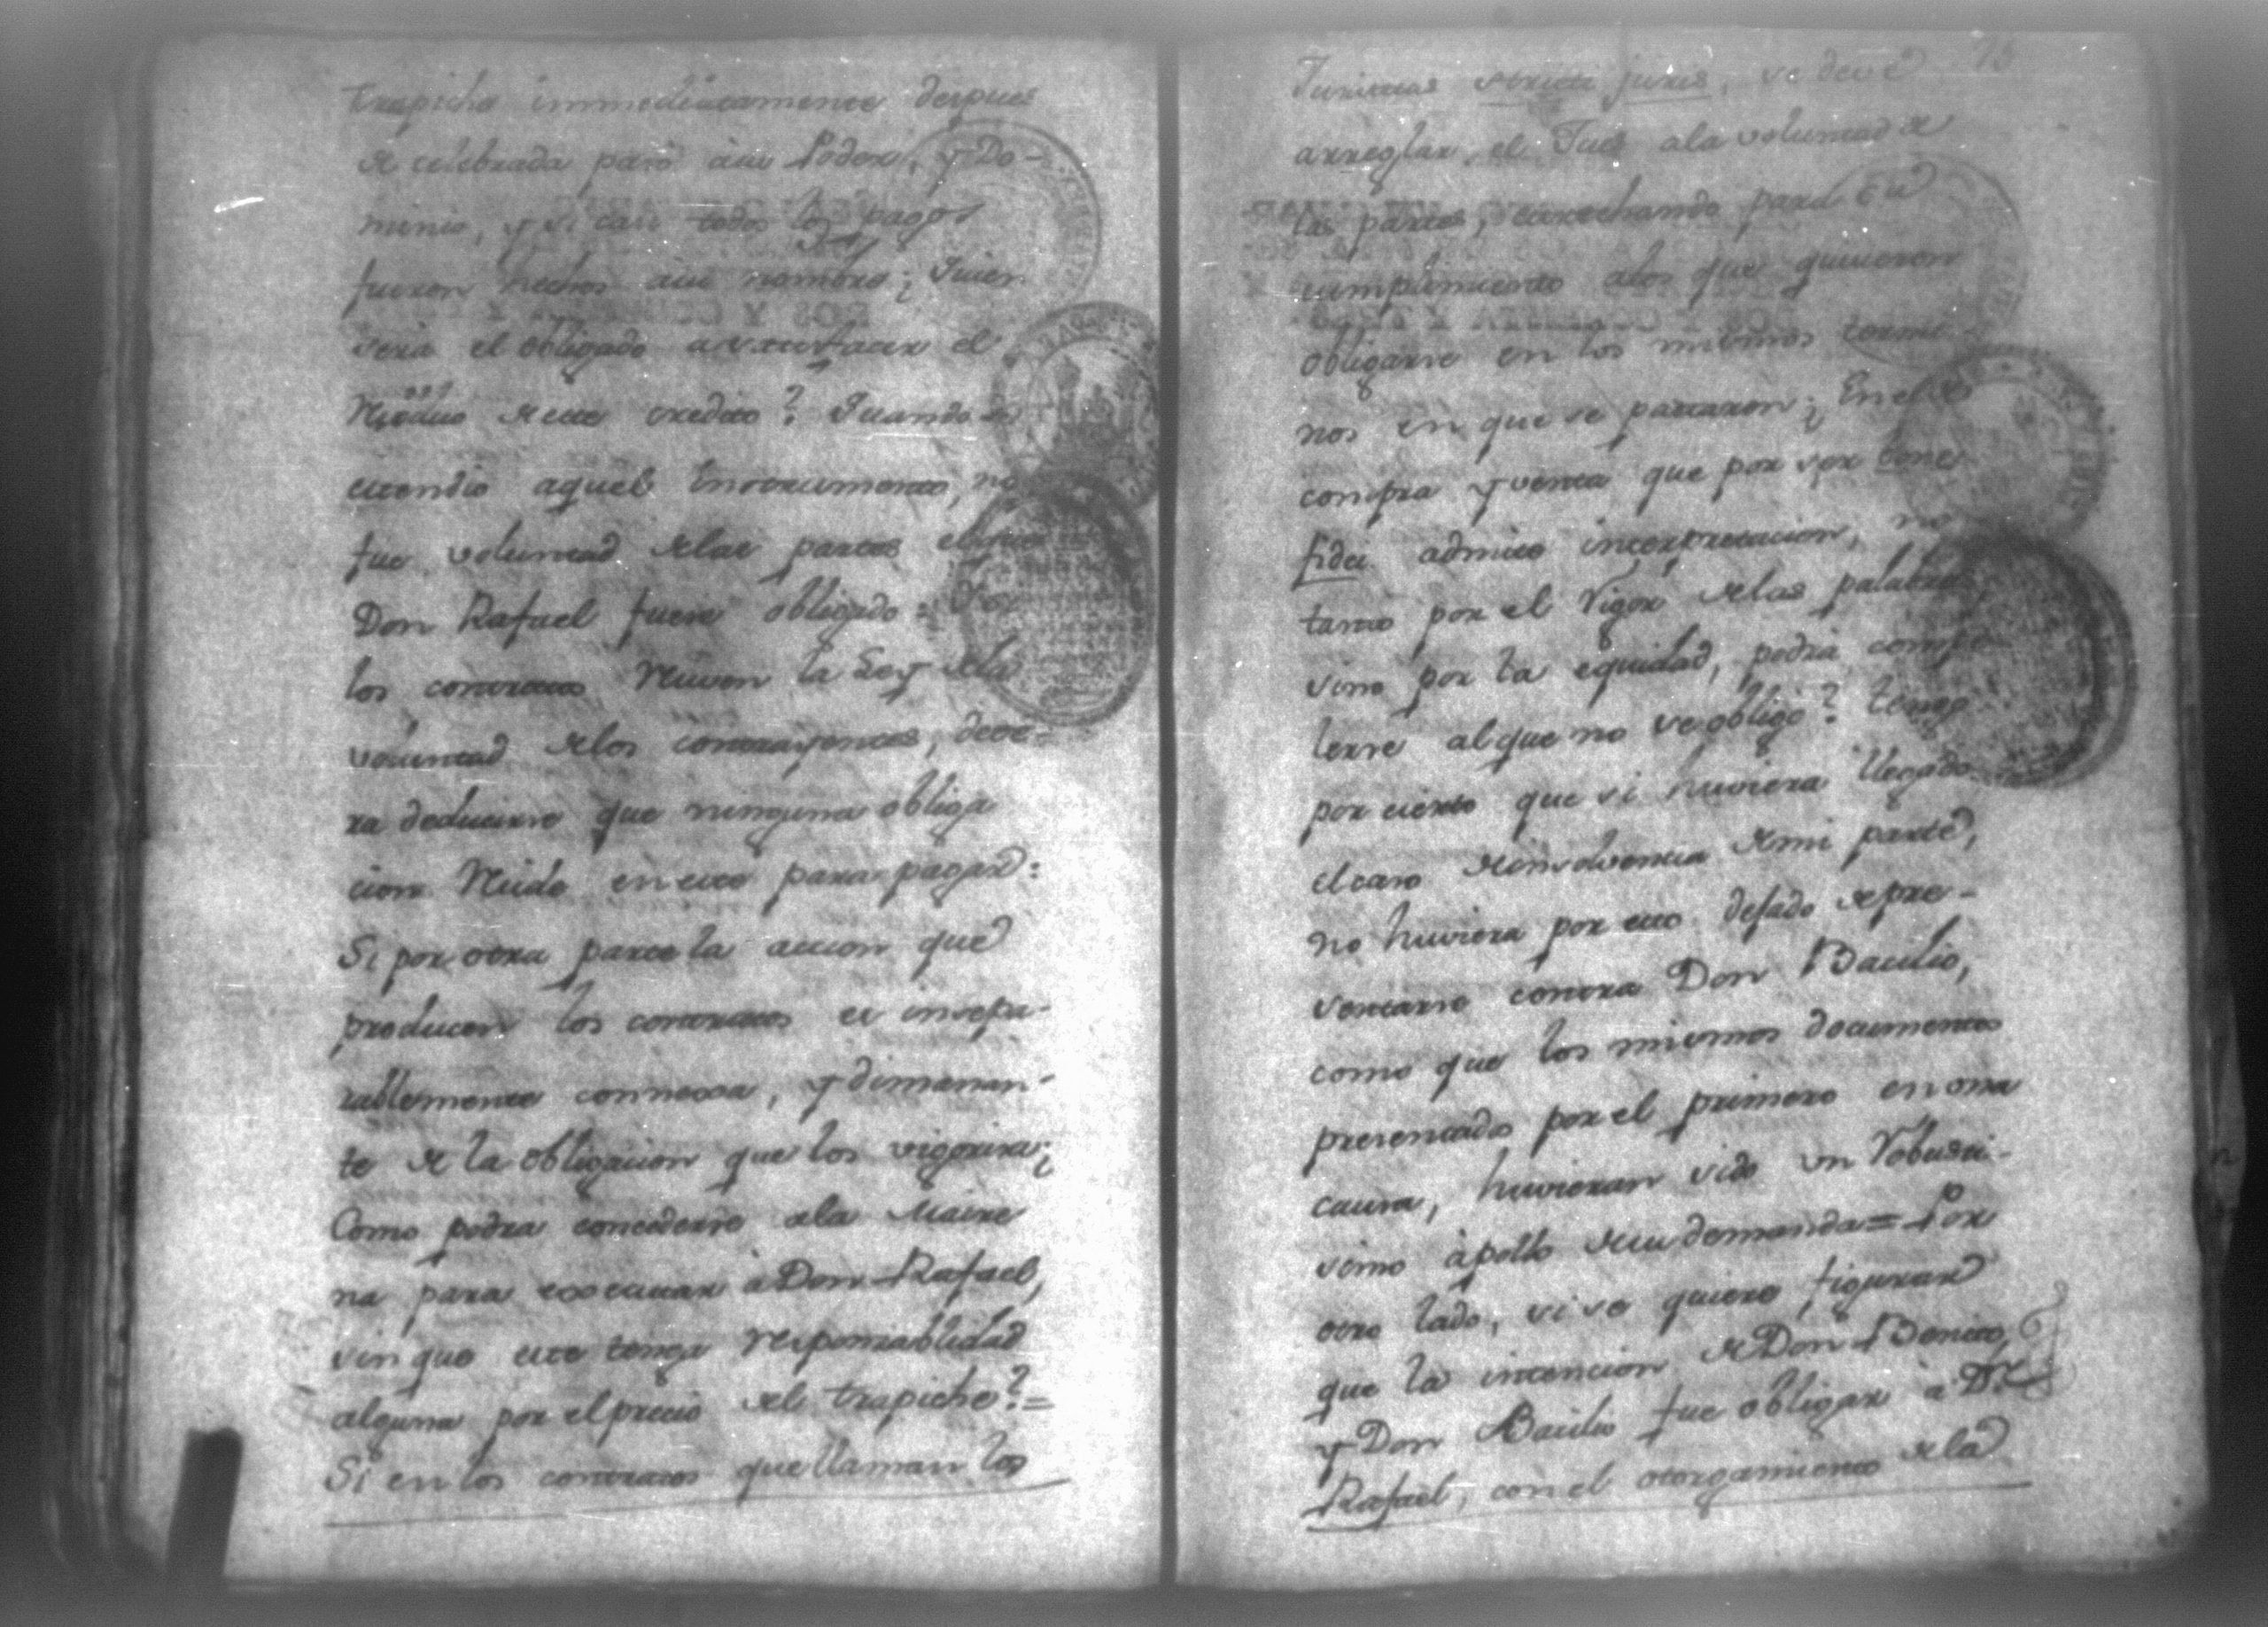 trapiche immediatamente despues
de celebrada paró ásu Poder, y Do-
minio, y si casi todos los pagos
fueron hechos asu nombre; Quien
será el obligado a satisfacer el
Residuo de este credito? Quando se
estendio aquel Instrumento, no
fue voluntad delas partes el que
Don Rafael fuese obligado: Por
los contratos Reciven la Ley dela
voluntad delos contrayentes, deve-
ra deducirse que ninguna obliga
cion Recide en este para pagar:
Si por otra parte la accion que
producen los contratos es insepa-
rablemente connexa, y dimanan-
te de la obligacion que los vigoriza;
Como podra concederse ala Maire
na para executar à Don Rafael,
sin que este tenga responsablidad
alguna por el precio del trapiche?=
Si en los contratos que llaman los
75
Juristas stricti juris, se deve
arreglar el Jues ala voluntad de
las partes, estrechando para su
cumplimiento alos que quisieron
obligarse en los mismos termi-
nos en que se pactaron; En el de
compra y venta que por ser bone
fidei admite interpretacion, no
tanto por el Vigor delas palabras,
sino por la equidad, podrá compe
lerse al que no se obligó? tengo
por cierto que si huviera llegado
el caso de insolvencia de mi parte,
no huviera por esso dejado de pre-
sentarse contra Don Bacilio,
como que los mismos documentos
presentados por el primero en otra
causa, huvieran sido un Robusti-
simo ápollo de su demanda= Por
otro lado, si se quiere figurar
que la intencion de Don Benito,
y Don Bacilio fue obligar à Dn
Rafael, con el otorgamiento dela